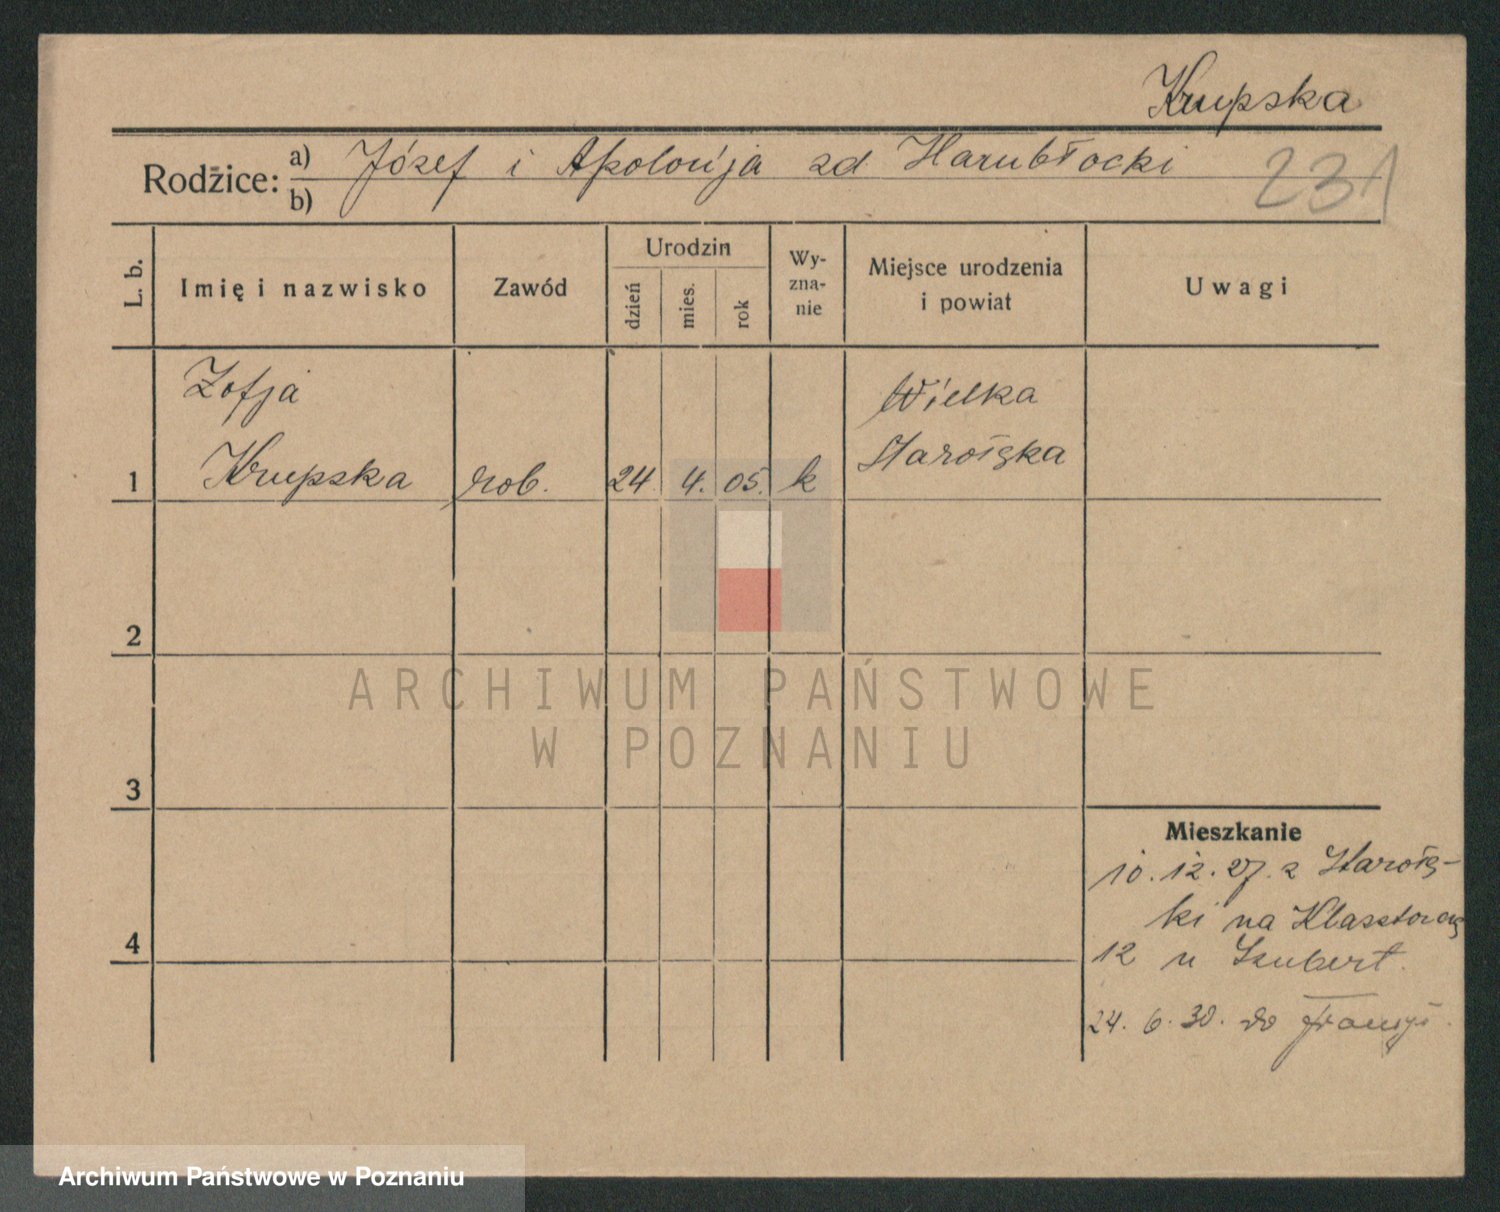 Krupska
Rodzice: a) Józef i Apolonja zd Harubłocki
b)
231
L. b.
Imię i nazwisko
Zawód
Urodzin
dzień
mies.
rok
Wy-
zna-
nie
Miejsce urodzenia
i powiat
Uwagi
Zofja
Krupska
1
rob.
24 4. 05. k
Wielka
Starołęka
2
3
4
Mieszkanie
10.12.27. z Starołę-
ki na Klasztorną
12 u Szubert.
24. 6. 30. do Francji.
ARCHIWUM PAŃSTWOWE
W POZNANIU
Archiwum Państwowe w Poznaniu